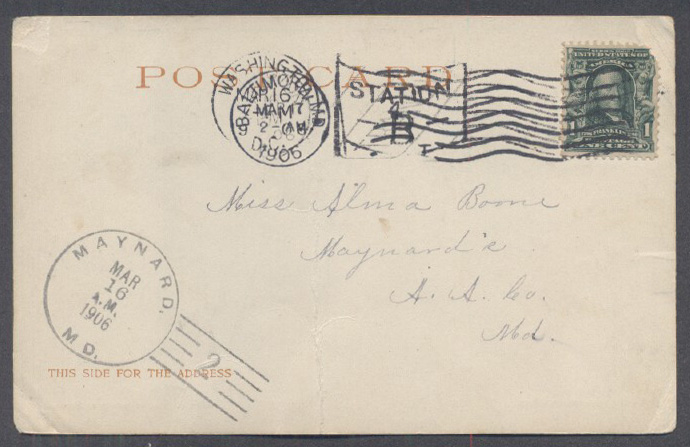 POST CARD
WASHINGTON
BALTIMORE, MD.
MAR 16
MAR 17
1906
STATION
B
UNITED STATES OF
AMERICA
FRANKLIN
1
ONE CENT
Miss Alma Boone
Maynard's
A. A. Co.
Md.
MAYNARD.
MAR
16
A.M.
1906
MD.
2
THIS SIDE FOR THE ADDRESS